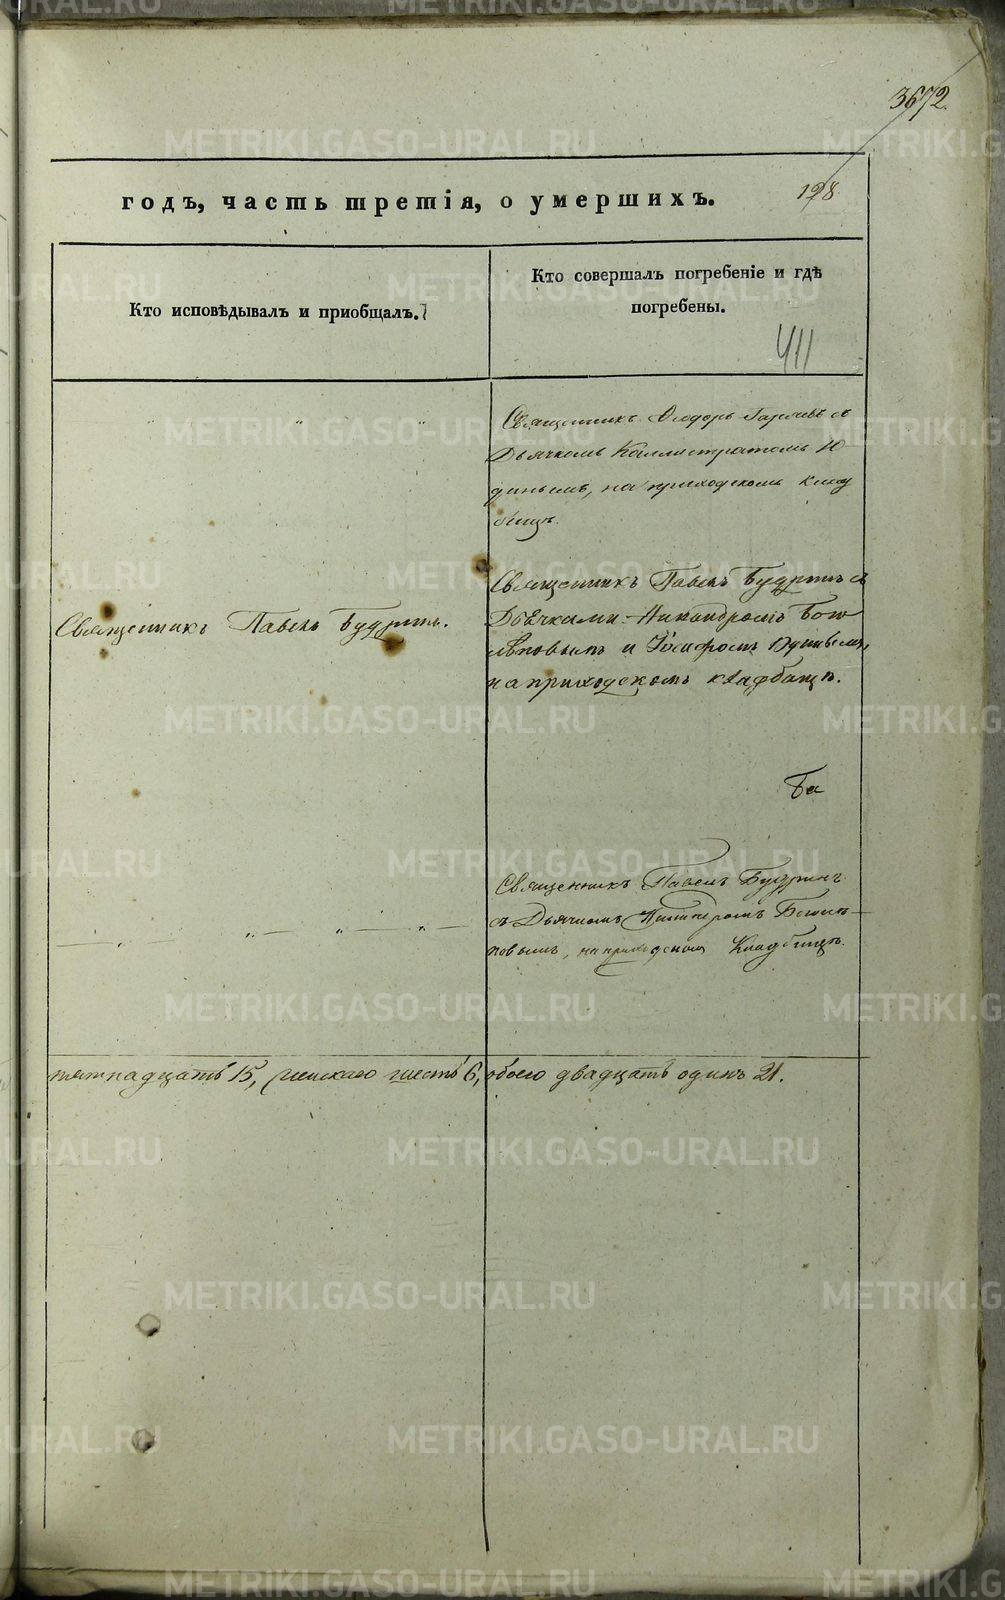 3672
годъ, часть третія, о умершихъ.
128
Кто исповѣдывалъ и приобщалъ.
Кто совершалъ погребеніе и гдѣ
погребены.
411
Священникъ Ѳеодоръ съ
Дьячкомъ Каллистратомъ Ю
динымъ, на приходскомъ клад
бищѣ.
Священникъ Павелъ Будринъ.
Священникъ Павелъ Будринъ съ
Дьячками Никандромъ Бого
лѣповымъ и Іосифомъ
на приходскомъ кладбищѣ.
Ба
Священникъ Павелъ Будринъ
съ Дьячкомъ
повымъ, на приходскомъ Кладбищѣ.
пятнадцать 15, женскаго шесть 6, обоего двадцать одинъ 21.
METRIKI.GASO-URAL.RU